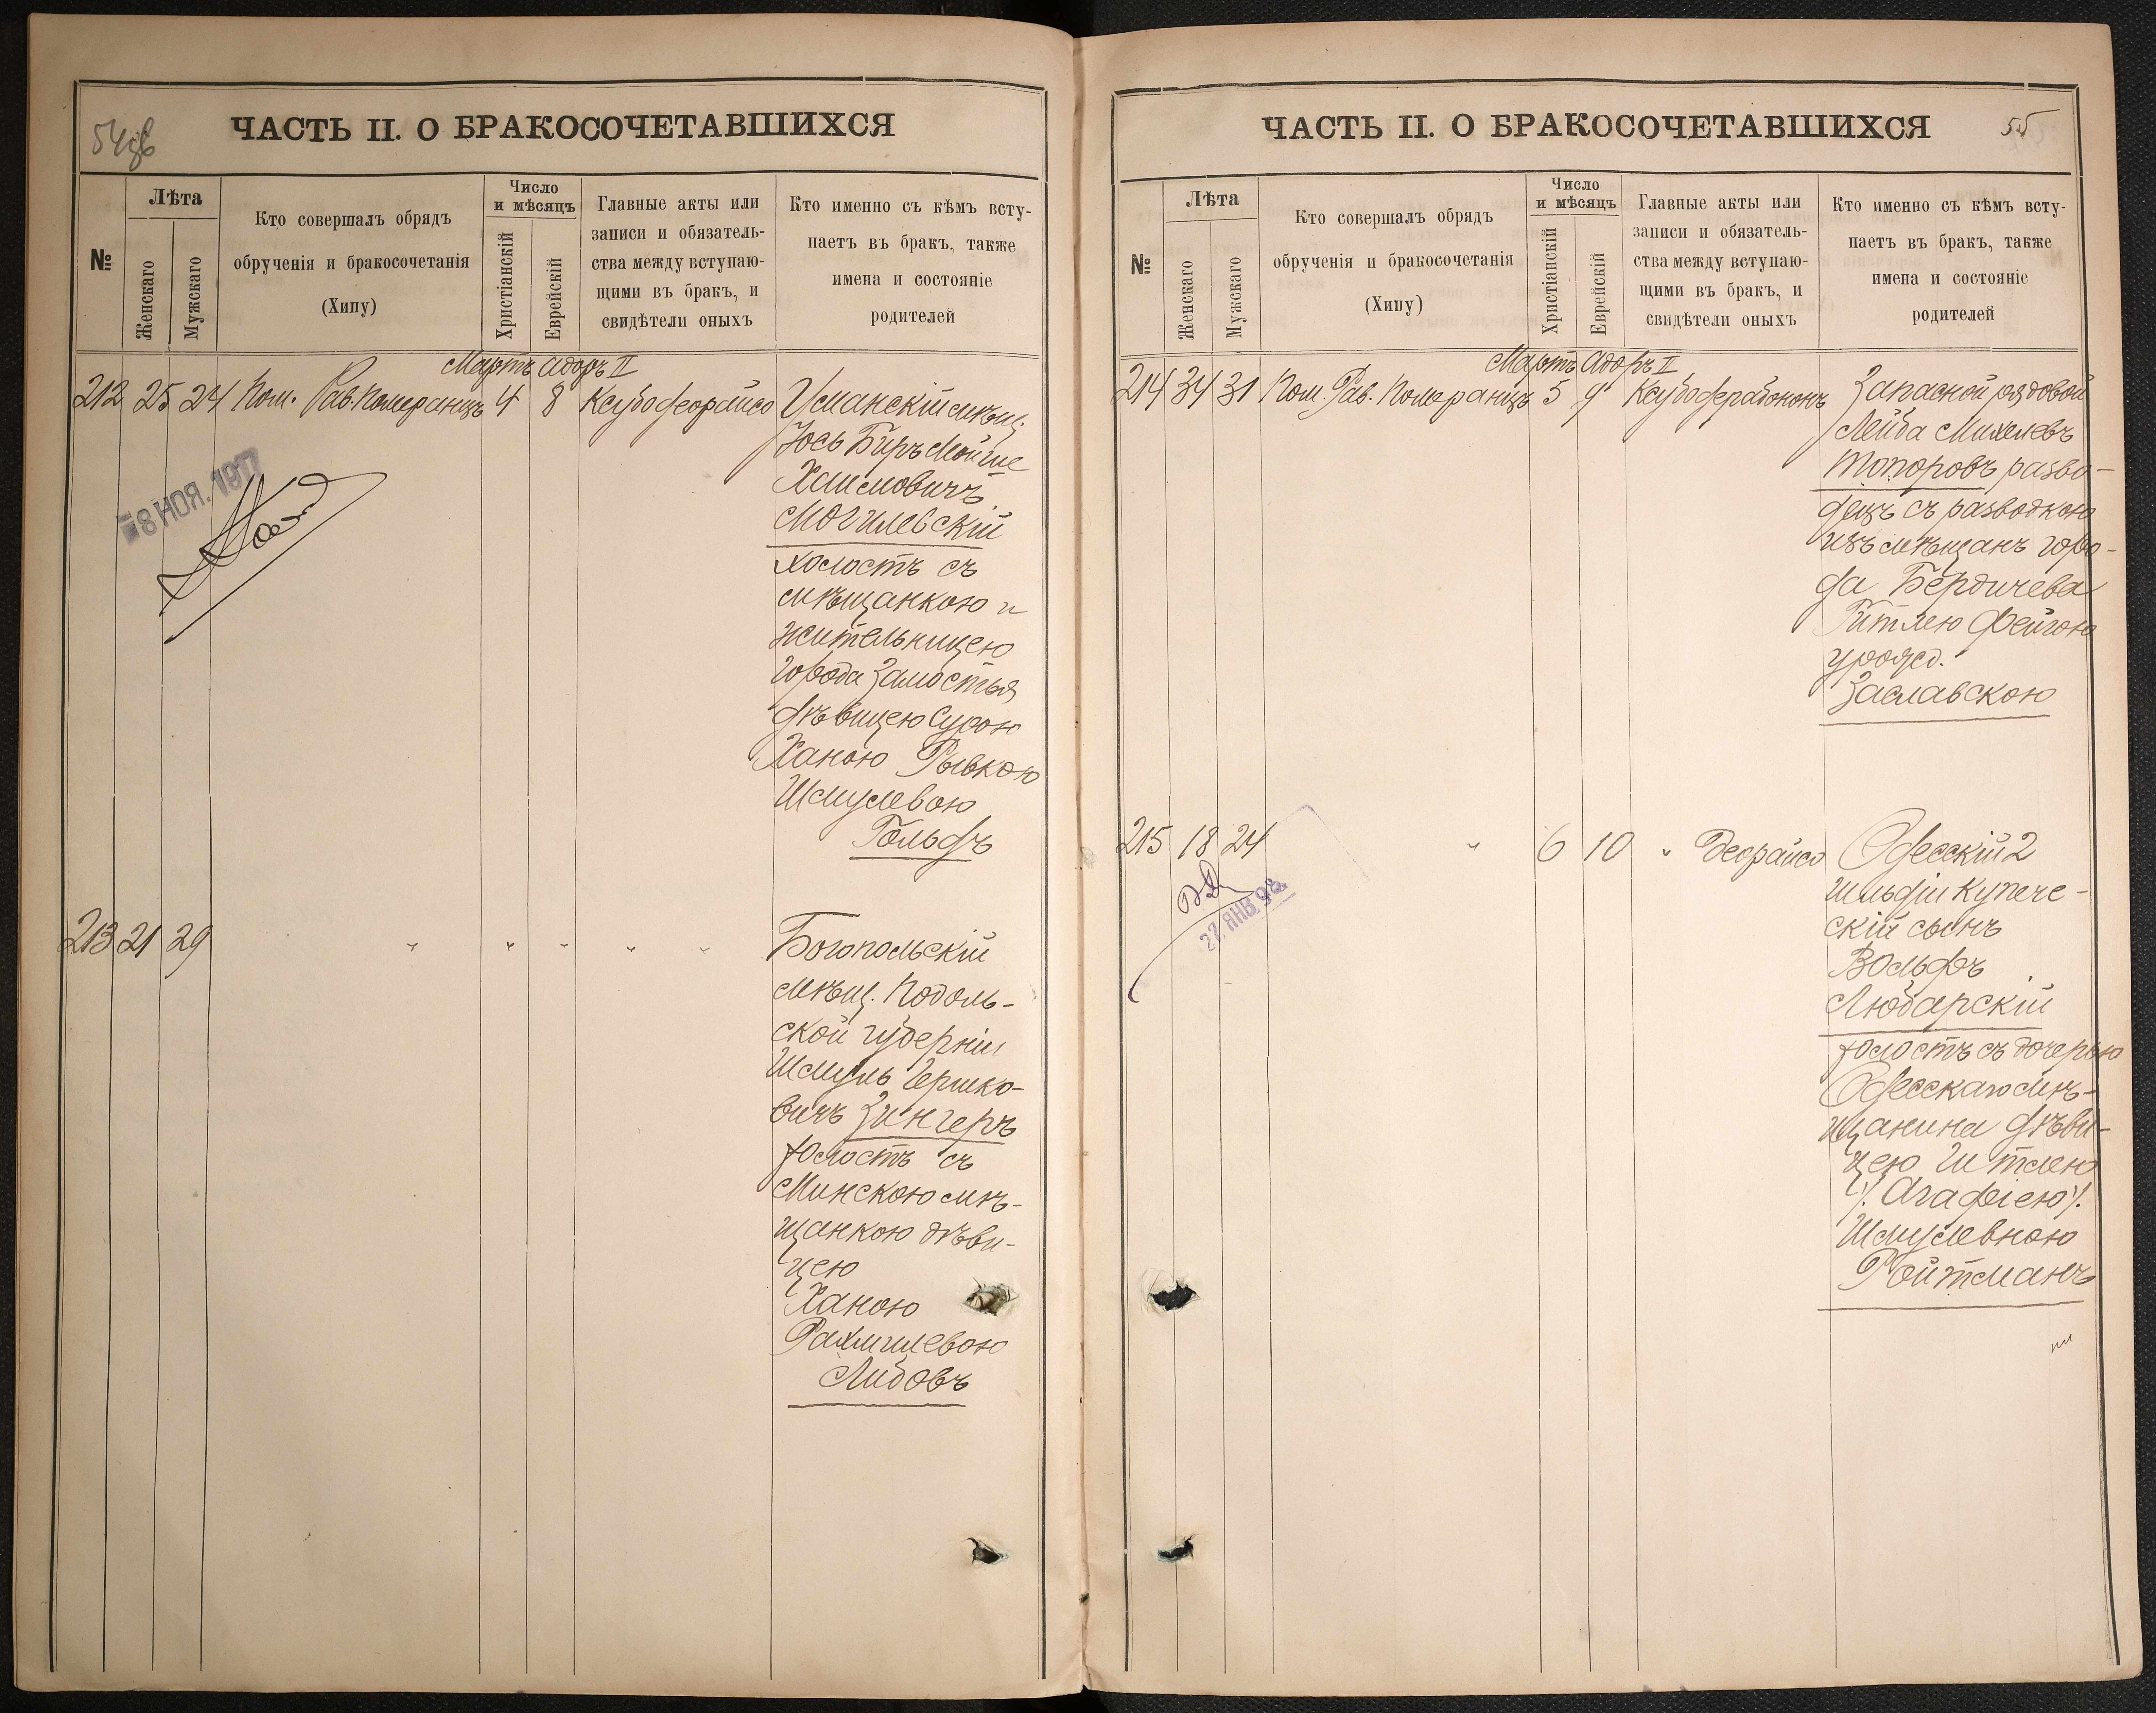 54об
ЧАСТЬ II. О БРАКОСОЧЕТАВШИХСЯ
№
Лѣта
Женскаго
Мужскаго
Кто совершалъ обрядъ
обрученія и бракосочетанія
(Хипу)
Число
и мѣсяцъ
Христіанскій
Еврейскій
Главные акты или
записи и обязатель-
ства между вступаю-
щими въ бракъ, и
свидѣтели оныхъ
Кто именно съ кѣмъ всту-
паетъ въ бракъ, также
имена и состояніе
родителей
Мартъ Адоръ II
212 25 24 Пом. Рав. Померанцъ 4 8 Ксубо деорайсо Уманскій мѣщ.
Іось Биръ Мойше
Хаимовичъ
Могилевскій
холостъ съ
мѣщанкою и
жительницею
города Замостья
дѣвицею Сурою
Ханою Рывкою
Шмулевою
Гольдъ
8 НОЯ. 1917
213 21 29 " " " " " Богопольскій
мѣщ. Подоль-
ской губерніи
Шмуль Гершко-
вичъ Зингеръ
холостъ съ
Минскою мѣ-
щанкою дѣви-
цею
Ханою
Рахмилевою
Либовъ
55
ЧАСТЬ II. О БРАКОСОЧЕТАВШИХСЯ
№
Лѣта
Женскаго
Мужскаго
Кто совершалъ обрядъ
обрученія и бракосочетанія
(Хипу)
Число
и мѣсяцъ
Христіанскій
Еврейскій
Главные акты или
записи и обязатель-
ства между вступаю-
щими въ бракъ, и
свидѣтели оныхъ
Кто именно съ кѣмъ всту-
паетъ въ бракъ, также
имена и состояніе
родителей
Мартъ Адоръ II
214 34 31 Пом. Рав. Померанцъ 5 9 Ксубо дерабононъ Запасной рядовой
Лейба Михелевъ
Топоровъ разво-
децъ съ разводкою
изъ мѣщанъ горо-
да Бердичева
Гитлею Фейгою
урожд.
Заславскою
215 18 24 " 6 10 " Деорайсо Одесскій 2
гильдіи купече-
скій сынъ
Вольфъ
Любарскій
холостъ съ дочерью
Одесскаго мѣ-
щанина дѣви-
цею Гитлею
/. Агафіею /.
Шмулевною
Ройтманъ
27. ЯНВ. 92